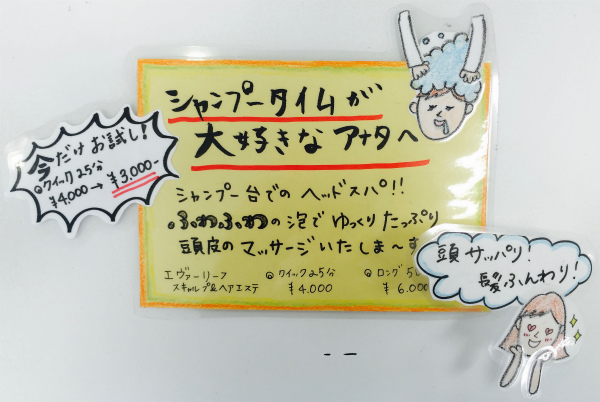 シャンプータイムが
大好きなアナタへ
今だけお試し!
◎クイック25分
¥4.000→¥3.000-
シャンプー台でのヘッドスパ!!
ふわふわの泡でゆっくりたっぷり
頭皮のマッサージいたしま〜す
エヴァーリーフ
スキャルプ&ヘアエステ
◎クイック25分
¥4.000
◎ロング5
¥6.000
頭サッパリ!
髪ふんわり!